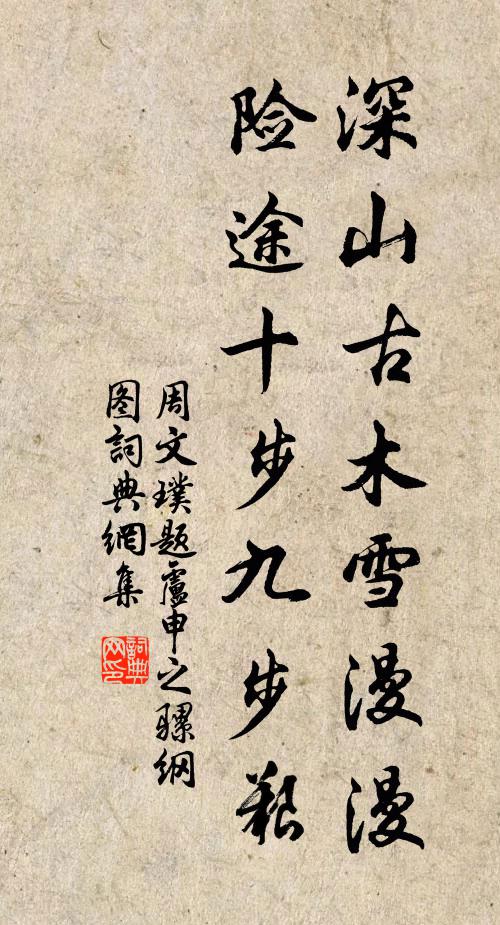 深山古木雪漫漫
险途十步九步艰
周文璞题盧申之骡纲
图詞典網集
詞典网印